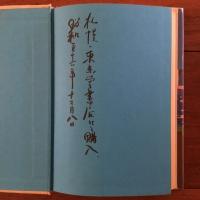 札幌・東京堂書店にて購入
昭和五十六年十二月八日